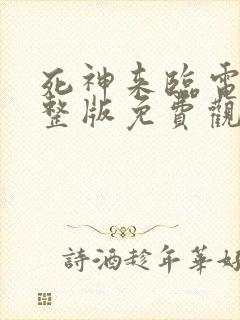 死神来臨電
整版免費觀
詩酒趁年華好